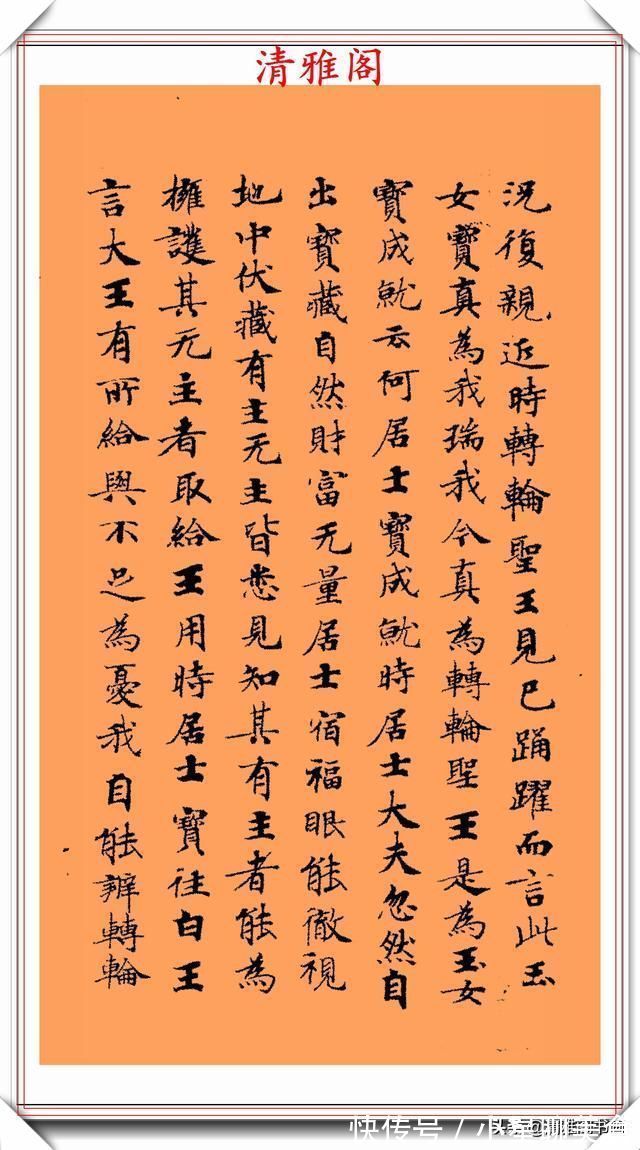 清雅阁
況復親近時轉輪聖王見已踊躍而言此玉
女寶真為我瑞我今真為轉輪聖王是為玉女
寶成就云何居士寶成就時居士大夫忽然自
出寶藏自然財富无量居士宿福眼能徹視
地中伏藏有主无主皆悉見知其有主者能為
擁護其无主者取給王用時居士寶往白王
言大王有所給與不足為憂我自能辦轉輪
快传号